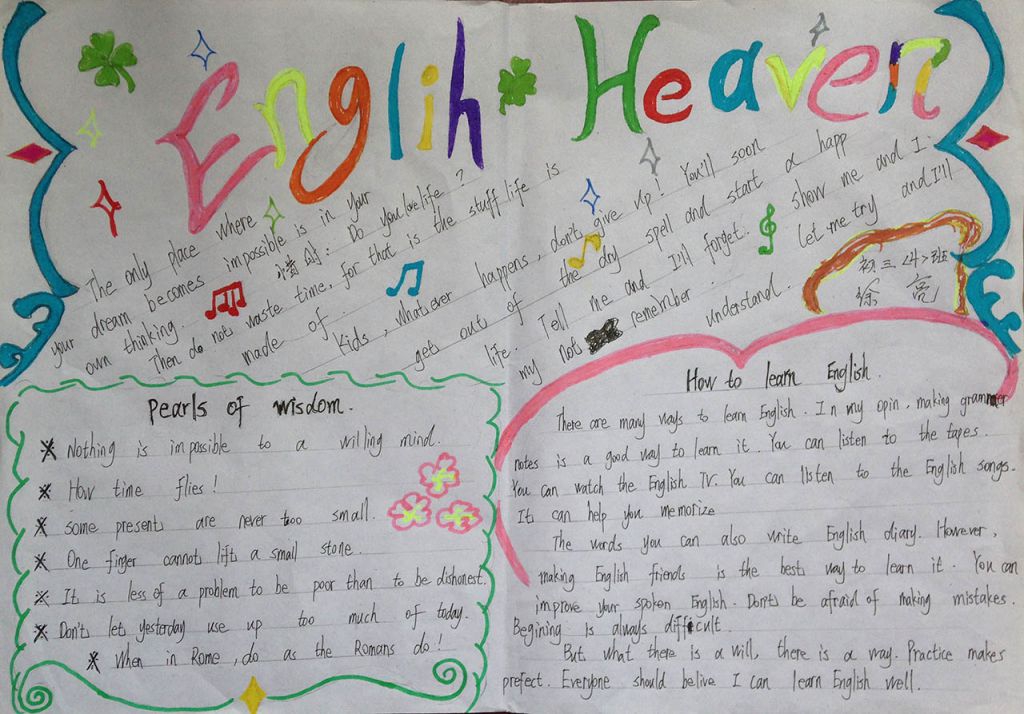 Englih Heaven
The only place where
your dream becomes impossible is in your
own thinking. Do you love life?
Then do not waste time, for that is the stuff life is
made of.
Kids, whatever happens, don't give up! You'll soon
get out of the dry spell and start a happ
life. Tell me and I'll forget. show me and I
my not remember. Let me try and I'll
understand.
初三4>班
徐亮
Pearls of wisdom.
Nothing is impossible to a willing mind.
How time flies!
some present are never too small.
One finger cannot lift a small stone.
It is less of a problem to be poor than to be dishonest.
Don't let yesterday use up too much of today.
When in Rome, do as the Romans do!
How to learn English.
There are many ways to learn English. In my opin, making grammer
notes is a good way to learn it. You can listen to the tapes.
You can watch the English TV. You can listen to the English songs.
It can help you memorize
The words you can also write English diary. However,
making English friends is the best way to learn it. You can
improve your spoken English. Don't be afraid of making mistakes.
Begining is always difficult.
But what there is a will, there is a way. Practice makes
prefect. Everyone should belive I can learn English well.